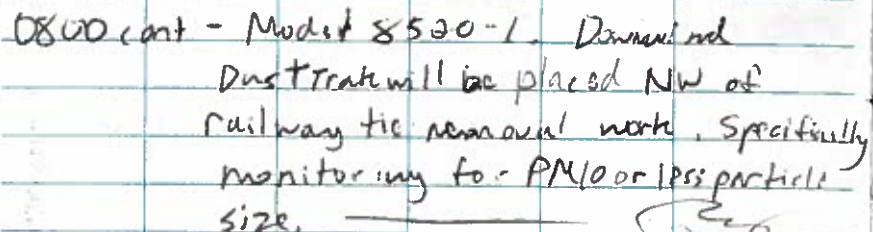 0800 cont - Model 8520-1. Downwind
DustTrak will be placed NW of
railway tie removal work. Specifically
monitoring for PM10 or less particle
size.